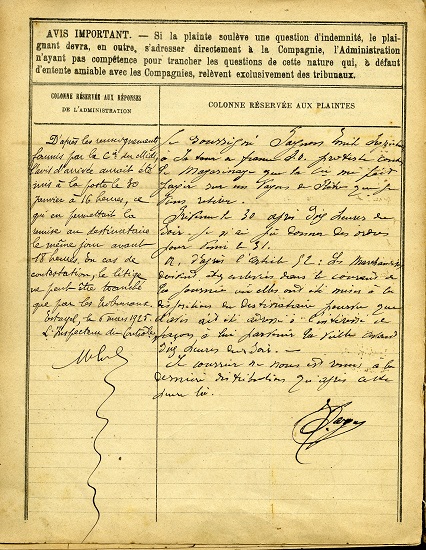 AVIS IMPORTANT. — Si la plainte soulève une question d'indemnité, le plai-
gnant devra, en outre, s'adresser directement à la Compagnie, l'Administration
n'ayant pas compétence pour trancher les questions de cette nature qui, à défaut
d'entente amiable avec les Compagnies, relèvent exclusivement des tribunaux.
COLONNE RÉSERVÉE AUX RÉPONSES
DE L'ADMINISTRATION
D'après les renseignements
fournis par la Cie du Midi
l'avis d'arrivée aurait été
mis à la poste le 30
janvier à 16 heures, ce
qui en permettait la
remise au destinataire
le même jour avant
18 heures. En cas de
contestation, le litige
ne peut être tranché
que par les tribunaux.
Estagel, le 6 mars 1925.
L'Inspecteur du Contrôle
COLONNE RÉSERVÉE AUX PLAINTES
Je soussigné
à proteste contre
le Magasinage que la Cie me fait
payer sur un wagon de que je
viens retirer.
le 30 après heures du
soir. Je n'ai pu donner des ordres
pour le 31.
d'après l'article : Les Marchandises
doivent être enlevées dans le courant de
la journée où elles ont été mises à la
disposition du destinataire pourvu que
l'avis ait été adressé à l'intéressé de
façon à lui parvenir la veille avant
heures du soir. —
Le courrier ne nous est remis, à la
dernière distribution qu'après cette
heure là.